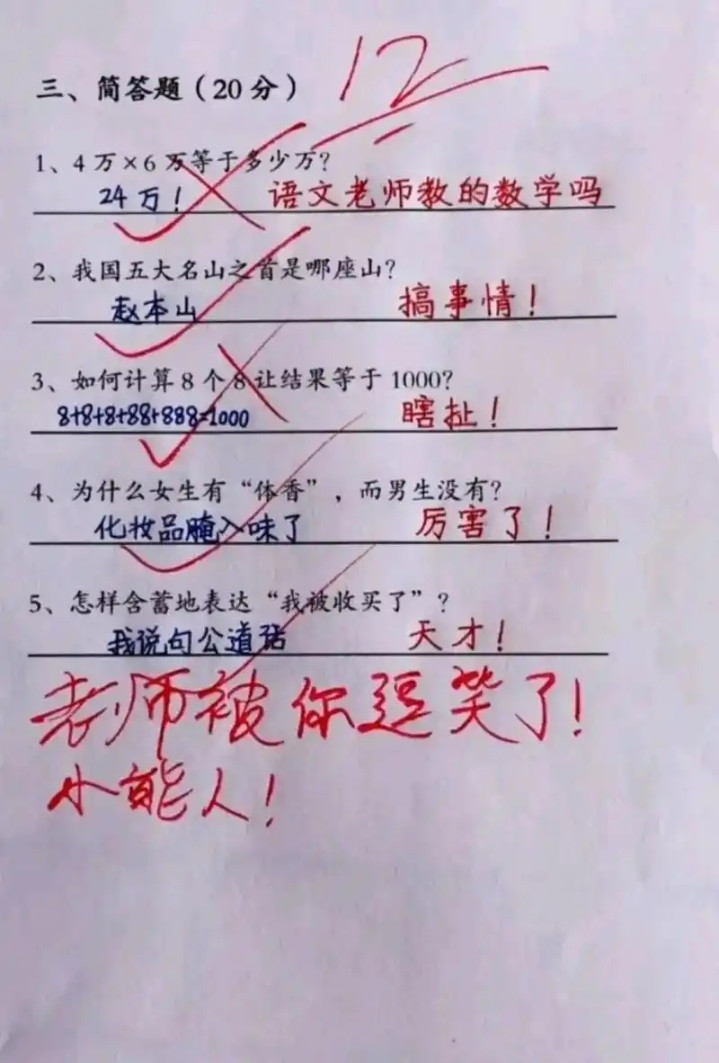 12
三、简答题（20分）
1、4万×6万等于多少万？
24万！ 语文老师教的数学吗
2、我国五大名山之首是哪座山？
赵本山 搞事情！
3、如何计算8个8让结果等于1000？
8+8+8+88+888=1000 瞎扯！
4、为什么女生有“体香”，而男生没有？
化妆品腌入味了 厉害了！
5、怎样含蓄地表达“我被收买了”？
我说句公道话 天才！
老师被你逗笑了！
小能人！